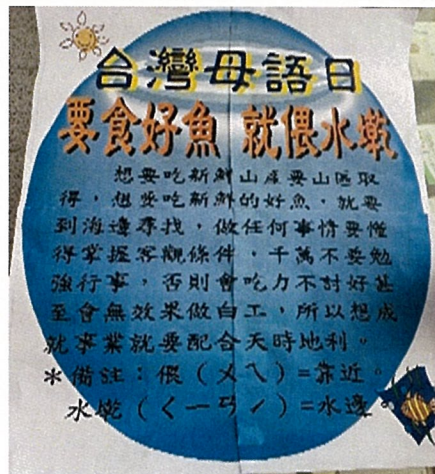 台灣母語日
要食好魚 就偎水墘
想要吃新鮮山產要山區取
得，想要吃新鮮的好魚，就要
到海邊尋找，做任何事情要懂
得掌握客觀條件，千萬不要勉
強行事，否則會吃力不討好甚
至會無效果做白工，所以想成
就事業就要配合天時地利。
*備註：偎（ㄨㄟ）=靠近。
水墘（ㄑㄧㄢˊ）=水邊。